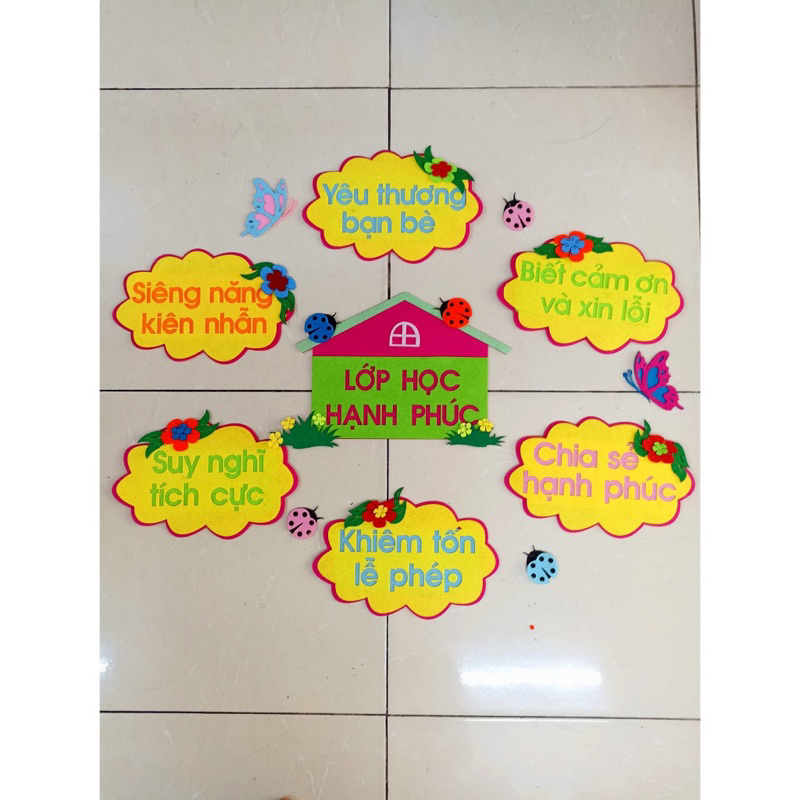 Yêu thương
bạn bè
Siêng năng
kiên nhẫn
Biết cảm ơn
và xin lỗi
LỚP HỌC
HẠNH PHÚC
Suy nghĩ
tích cực
Chia sẻ
hạnh phúc
Khiêm tốn
lễ phép